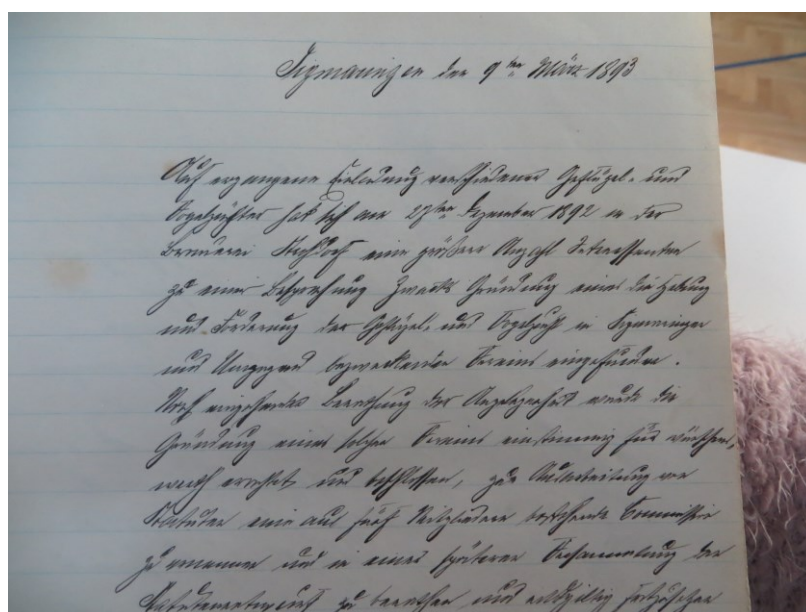 Sigmaringen den 9ten März 1893
Auf ergangene Einladung verschiedener Geflügel- und
Vogelzüchter hat sich am 27ten Dezember 1892 in der
Brauerei eine größere Anzahl Interessenten
zu einer Besprechung zwecks Gründung eines die Hebung
und Förderung der Geflügel- und Vogelzucht in Sigmaringen
und Umgegend bezweckenden Vereins eingefunden.
Nach eingehender Berathung der Angelegenheit wurde die
Gründung eines solchen Vereins einstimmig für wünschens-
werth erachtet und beschlossen, zur Ausarbeitung von
Statuten eine aus fünf Mitgliedern bestehende Commission
zu ernennen und in einer späteren Versammlung den
Statutenentwurf zu berathen und endgiltig